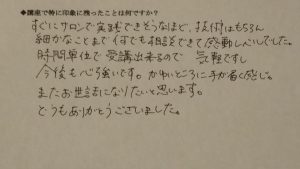 ◆講座で特に印象に残ったことは何ですか？
すぐにサロンで実践できそうなほど、技術はもちろん
細かなことまで何でも相談できて感動しっぱなしでした。
時間単位で受講出来るので 気軽ですし
今後も心強いです。かゆいところに手が届く感じ。
またお世話になりたいと思います。
どうもありがとうございました。